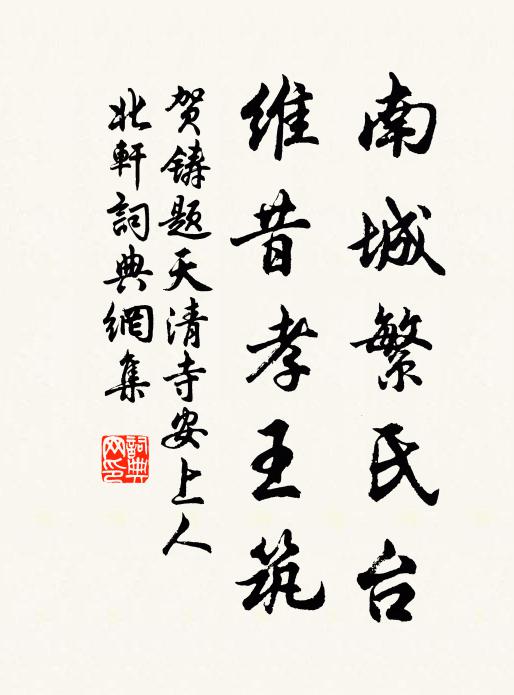 南城繁氏台
维昔孝王筑
贺铸题天清寺安上人
北軒詞典網集
詞典网印